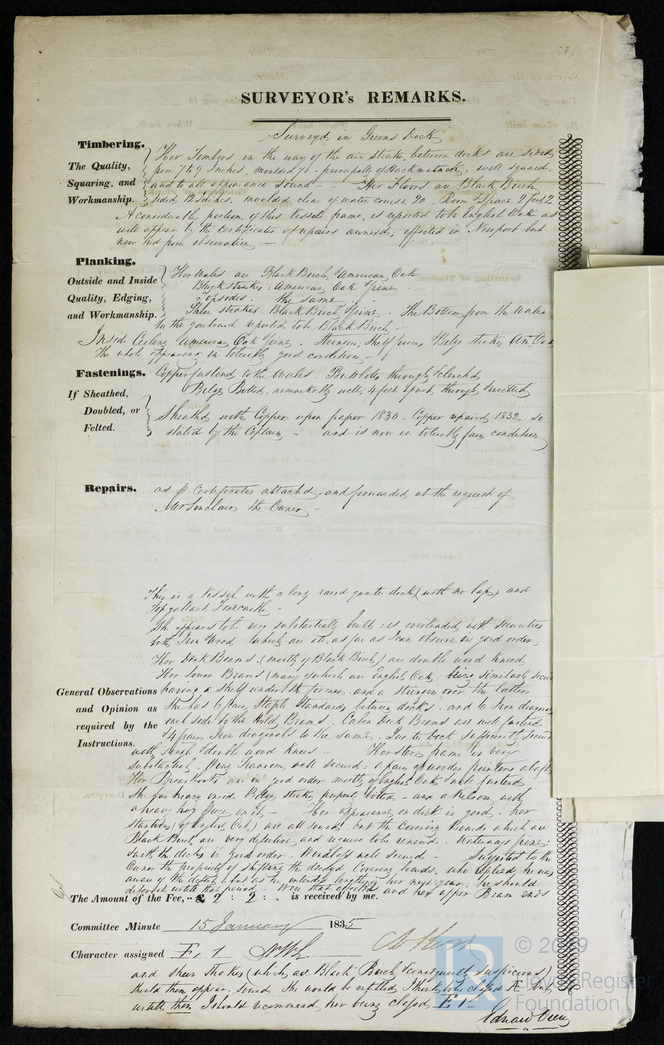 SURVEYOR's REMARKS.
Surveyed in Greens Dock
Timbering.
The Quality,
Squaring, and
Workmanship.
Her Timbers in the way of the air Strake, between decks are sided
from 7 to 9 Inches, moulded - principally of Hackmatack, well squared
and to all appearance Sound - Her Floors are Black Birch
sided 12 Inches. moulded clear of water course 20. Room & Space 2 feet 2
A considerable portion of this Vessels frame, is reported to be English Oak as
will appear by the Certificates of repairs annexed, effected in Newport but
now hid from observation
Planking.
Outside and Inside
Quality, Edging,
and Workmanship.
Her Wales are Black Birch & American Oak
Black strakes: American Oak & pine
Topsides: the same
Sheer strakes Black Birch & pine. The Bottom from the Wales
to the garboard reported to be Black Birch
Inside Ceiling American Oak & pine - Stringers, Shelf pieces & Bilge strakes, Am. Oak
The whole appearing in tolerably good condition
Fastenings.
Copper fastened to the Wales. Butt bolts through & clenched
Bilges Bolted, remarkably well, 4 feet apart, through & rivetted
If Sheathed,
Doubled, or
Felted.
Sheathed with Copper upon paper 1830. Copper repaired 1832. so
stated by the Captain - and is now in tolerably fair condition
Repairs.
as p Certificates attached, and forwarded at the request of
Mr Sinclair the Owner
General Observations
and Opinion as
required by the
Instructions.
This is a Vessel with a long raised quarter deck (with no lap) and
Top gallant Forecastle
She appears to be very substantially built: is overloaded with securities
both Iron & Wood, which are all, as far as I can observe in good order
Her Deck Beams (mostly of Black Birch) are double wood kneed
Her Lower Beams (many of which are English Oak) being similarly secured
having a Shelf under the former, and a Stringer over the latter
She has 6 pair Staple Standards between decks, and 6 Iron diagonals
each side to the Hold Beams. Cabin Deck Beams are well fastened
4 pair Iron diagonals to the same. Quarter deck sufficiently secured
with single & double wood knees - Her stern frame is very
substantial. Wing Transom, well secured: a pair of wooden pointers abaft
Her Breasthooks are in good order mostly of English Oak & well fastened
She has heavy inside Bilge strakes, properly bolted - and a Kelson with
a heavy hog piece on it - Her appearance on deck is good. Her
stantions (of English Oak) are all sound, but the Covering Boards which are
Black Birch, are very defective and require to be renewed. Waterways pine:
with the decks in good order. Windlass well secured - Suggested to the
Owner the propriety of shifting the decayed Covering boards, who replied, he was
aware of the defect, but as he intended her next year, he should
defer it until that period. Were that effected and her upper Beam ends
The Amount of the Fee, .. £ 2 : 2 : is received by me.
Committee Minute 15 January 1835
Character assigned E. 1
and Sheer Strakes (which, as Black Birch I consequently suspicious)
should these appear sound, She would be entitled I think, to be classed
until then I should recommend her being classed E 1
© 2019
Lloyd's Register
Foundation